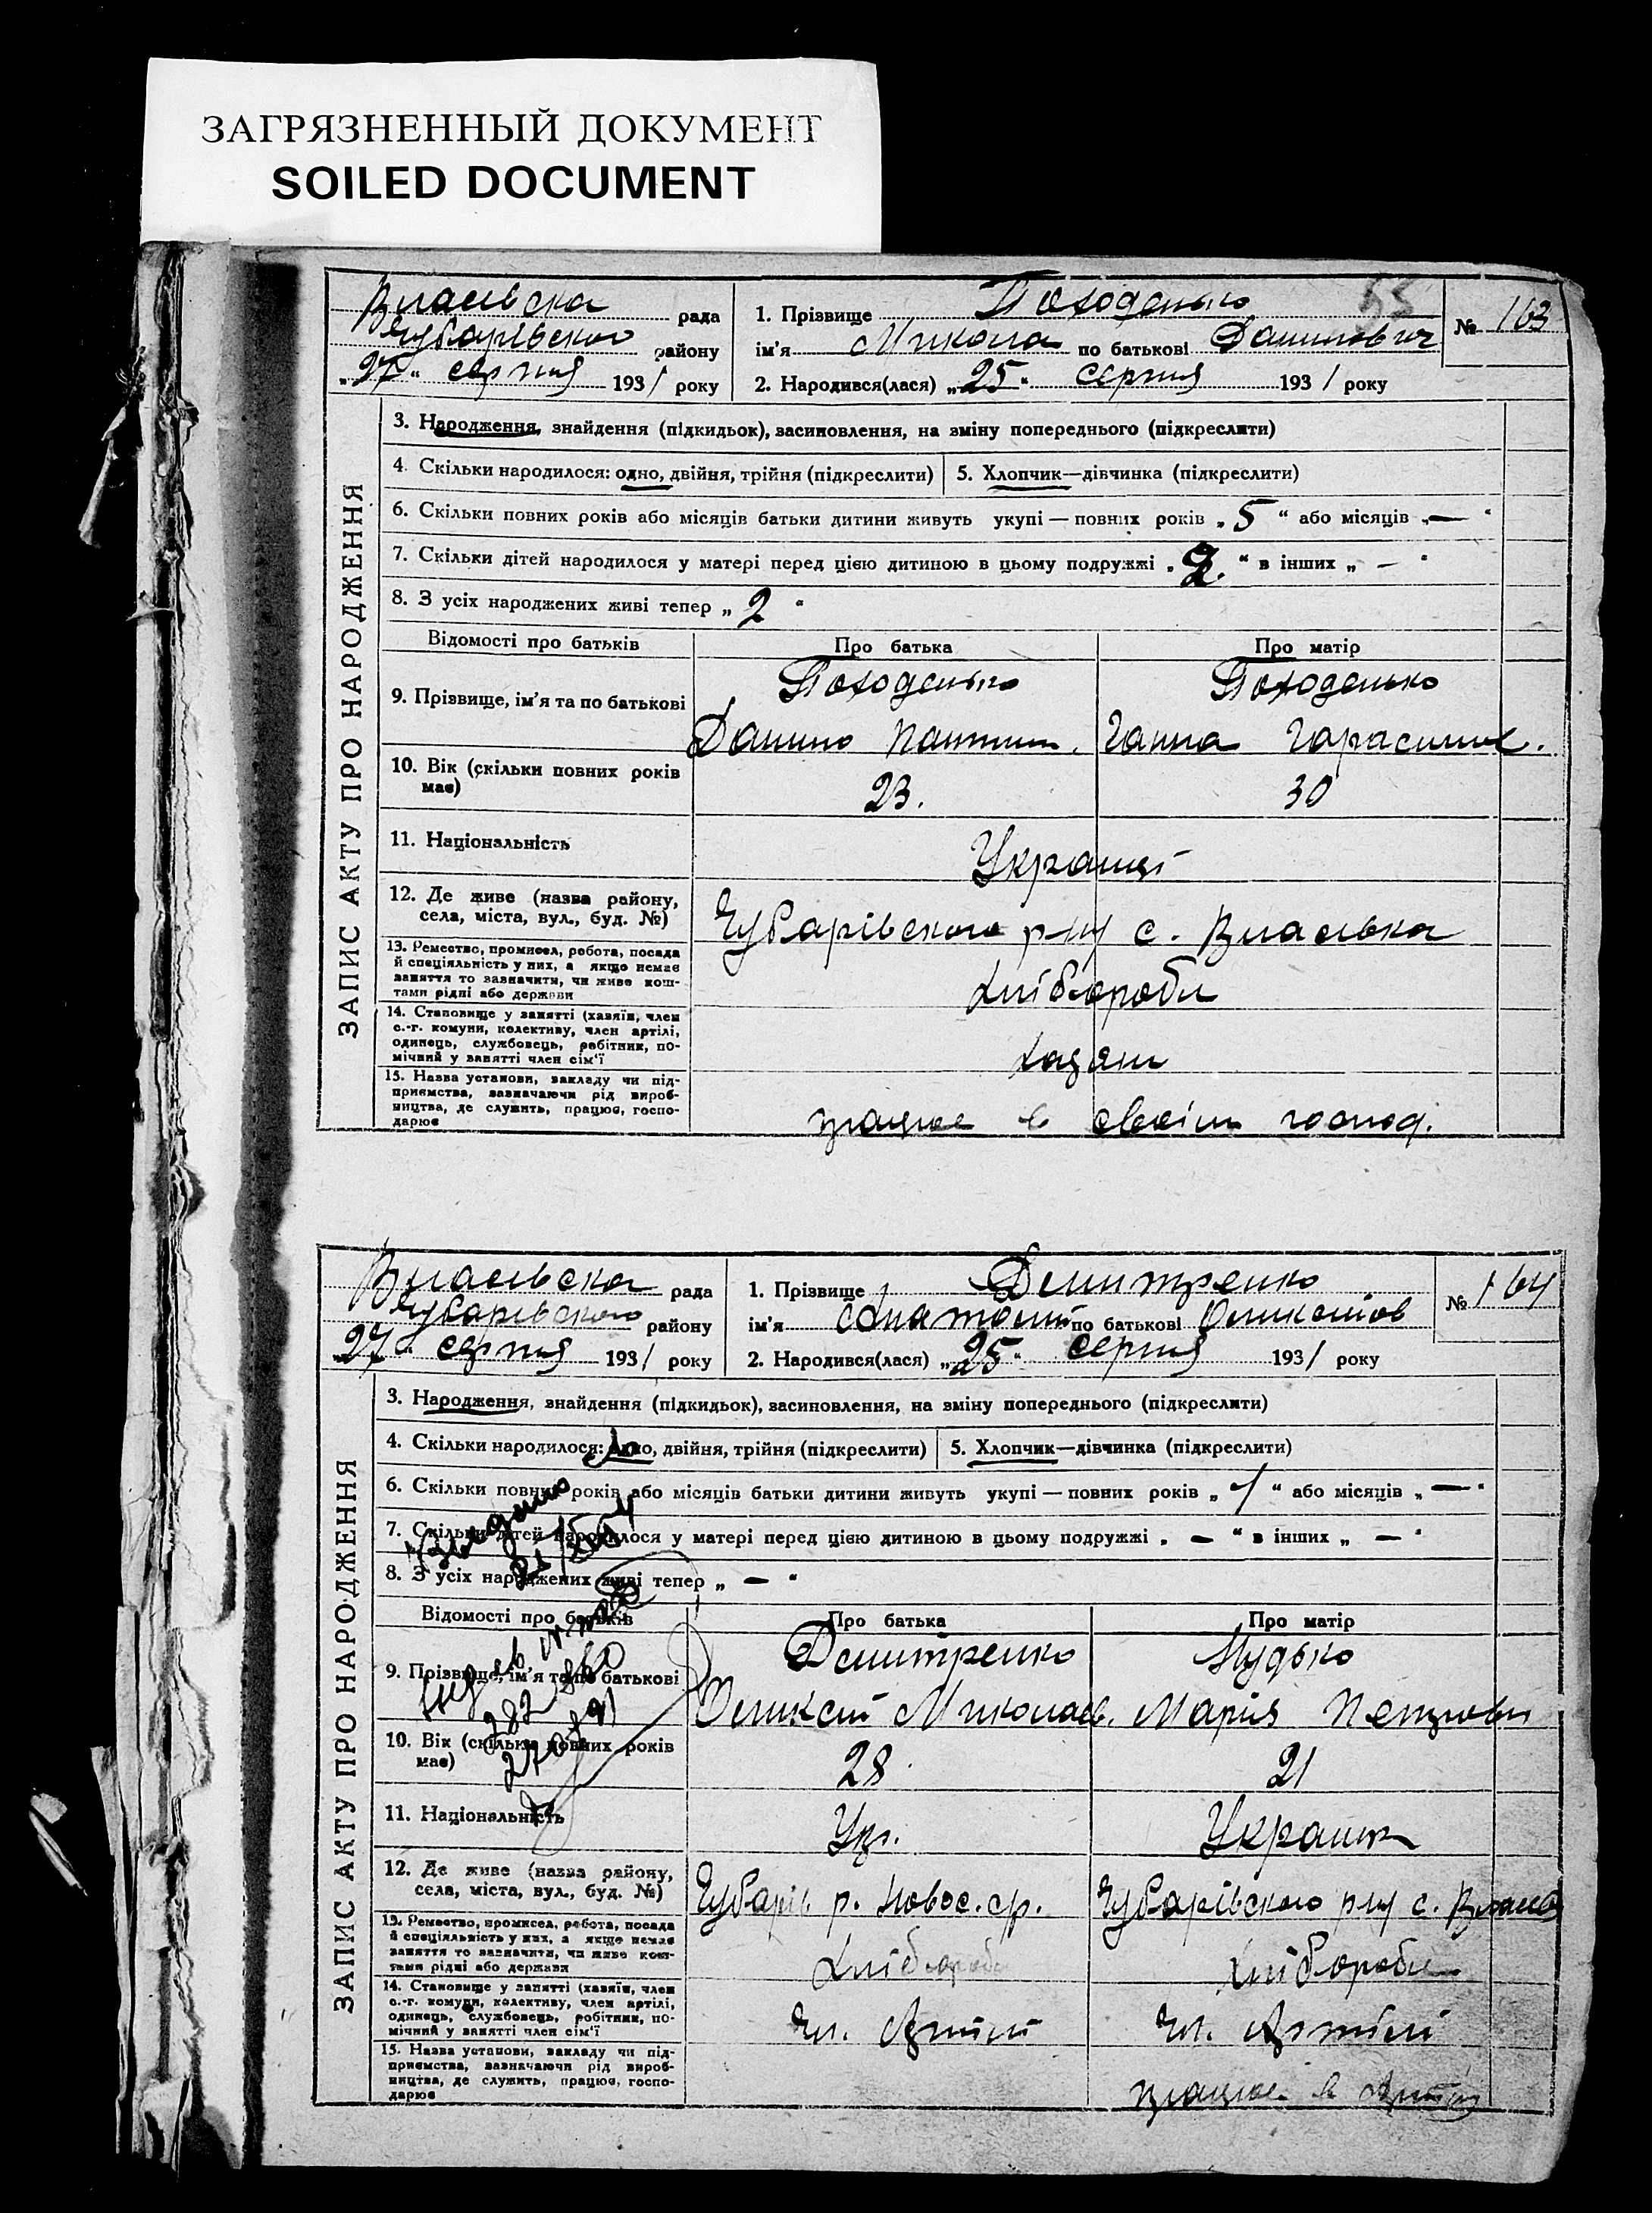 ЗАГРЯЗНЕННЫЙ ДОКУМЕНТ
SOILED DOCUMENT
55
Власівска рада
Чубарівского району
„27“ серпня 1931 року
1. Прізвище Походенько
ім'я Микола по батькові Данилович
2. Народився(лася) „25“ серпня 1931 року
№ 163
ЗАПИС АКТУ ПРО НАРОДЖЕННЯ
3. Народження, знайдення (підкидьок), засиновлення, на зміну попереднього (підкреслити)
4. Скільки народилося: одно, двійня, трійня (підкреслити)
5. Хлопчик—дівчинка (підкреслити)
6. Скільки повних років або місяців батьки дитини живуть укупі — повних років „5“ або місяців „—“
7. Скільки дітей народилося у матері перед цією дитиною в цьому подружжі „2.“ в інших „—“
8. З усіх народжених живі тепер „2“
Відомості про батьків
Про батька
Про матір
9. Прізвище, ім'я та по батькові
Походенько
Данило
Походенько
Ганна Гарасимов.
10. Вік (скільки повних років має)
23.
30
11. Національність
Українці
12. Де живе (назва району,
села, міста, вул., буд. №)
Чубарівского р-ну с. Власівка
13. Ремество, промисел, робота, посада
й спеціяльність у них, а якщо немає
заняття то зазначити, чи живе кош-
тами рідні або держави
Хлібороби
14. Становище у занятті (хазяїн, член
с.-г. комуни, колективу, член артілі,
одинець, службовець, робітник, по-
мічний у занятті член сім'ї
Хазяїн
15. Назва установи, закладу чи під-
приємства, зазначаючи рід вироб-
ництва, де служить, працює, госпо-
дарює
працює в своїм господ.
Власівска рада
Чубарівского району
„27“ серпня 1931 року
1. Прізвище Демитренко
ім'я Анатолий по батькові Оликсійов
2. Народився(лася) „25“ серпня 1931 року
№ 164
ЗАПИС АКТУ ПРО НАРОДЖЕННЯ
3. Народження, знайдення (підкидьок), засиновлення, на зміну попереднього (підкреслити)
4. Скільки народилося: одно, двійня, трійня (підкреслити)
5. Хлопчик—дівчинка (підкреслити)
6. Скільки повних років або місяців батьки дитини живуть укупі — повних років „1“ або місяців „—“
7. Скільки дітей народилося у матері перед цією дитиною в цьому подружжі „—“ в інших „—“
8. З усіх народжених живі тепер „—“
Відомості про батьків
Про батька
Про матір
9. Прізвище, ім'я та по батькові
Демитренко
Оликсій Миколаєв.
Нудько
Марія Петровн
10. Вік (скільки повних років має)
28
21
11. Національність
Укр.
Українк
12. Де живе (назва району,
села, міста, вул., буд. №)
Чубарів. р. Новос. с/р.
Чубарівского р-ну с. Власів
13. Ремество, промисел, робота, посада
й спеціяльність у них, а якщо немає
заняття то зазначити, чи живе кош-
тами рідні або держави
Хлібороб
Хлібороби
14. Становище у занятті (хазяїн, член
с.-г. комуни, колективу, член артілі,
одинець, службовець, робітник, по-
мічний у занятті член сім'ї
Чл. Артілі
Чл. Артілі
15. Назва установи, закладу чи під-
приємства, зазначаючи рід вироб-
ництва, де служить, працює, госпо-
дарює
працює в Артілі